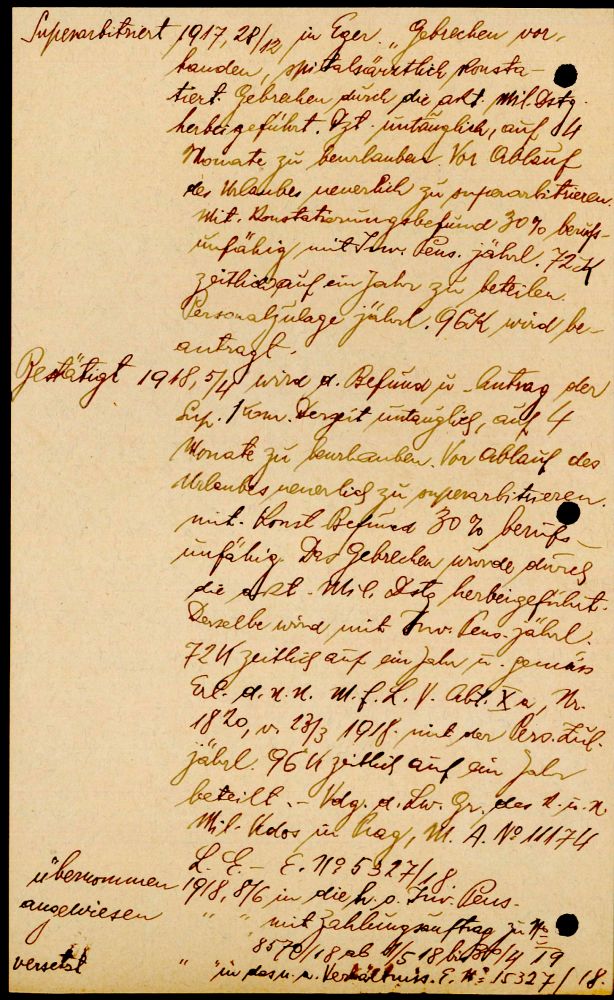 Superarbitriert 1917, 28/12 in Eger „Gebrechen vor-
handen, spitalsärztlich konsta-
tiert. Gebrechen durch die akt. Mil. Dstg.
herbeigeführt. Dzt. untauglich, auf 4
Monate zu beurlauben. Vor Ablauf
des Urlaubes neuerlich zu superarbitrieren.
Mit. Konstatierungsbefund 30% berufs-
unfähig mit Inv. Pens. jährl. 72 K
zeitlich auf ein Jahr zu beteilen.
Personalzulage jährl. 96 K wird be-
antragt.
Bestätigt 1918, 5/4 wird d. Befund u. Antrag der
Sup. Kom. Derzeit untauglich, auf 4
Monate zu beurlauben. Vor Ablauf des
Urlaubes neuerlich zu superarbitrieren.
mit. Konst. Befund 30% berufs-
unfähig Das Gebrechen wurde durch
die akt. Mil. Dstg herbeigeführt.
Derselbe wird mit Inv. Pens. jährl.
72 K zeitlich auf ein Jahr u. gemäss
Erl. d. k. k. M. f. L. V. Abt. X a, Nr.
1820, v. 23/3 1918. mit der Pers. Zul.
jährl. 96 K zeitlich auf ein Jahr
beteilt. - Vdg. d. Lw. Gr. des k. u. k.
Mil. Kdos in Prag, M. A. Nº 11174
L. E. - E. Nº 5327/18
übernommen 1918, 8/6 in die h. o. Inv. Pens.
angewiesen " " mit Zahlungsauftrag zu Nº
8570/18 ab 1/5 18 bis 30/4 19
versetzt " " in das n. a. Verhältniss. E. Nº 15327/18.